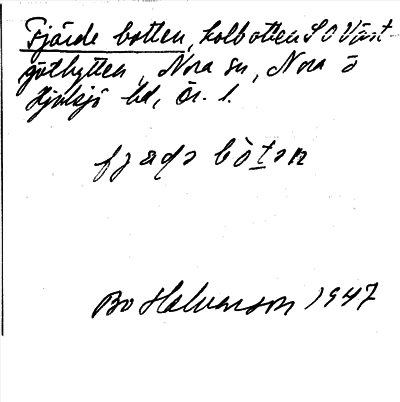 Fjärde botten, kolbotten S O Väst-
göthyttan, Nora sn, Nora o
Hjulsjö bd, Ör. l.
fjæɖə bòt̲ən
Bo Halvarson 1947